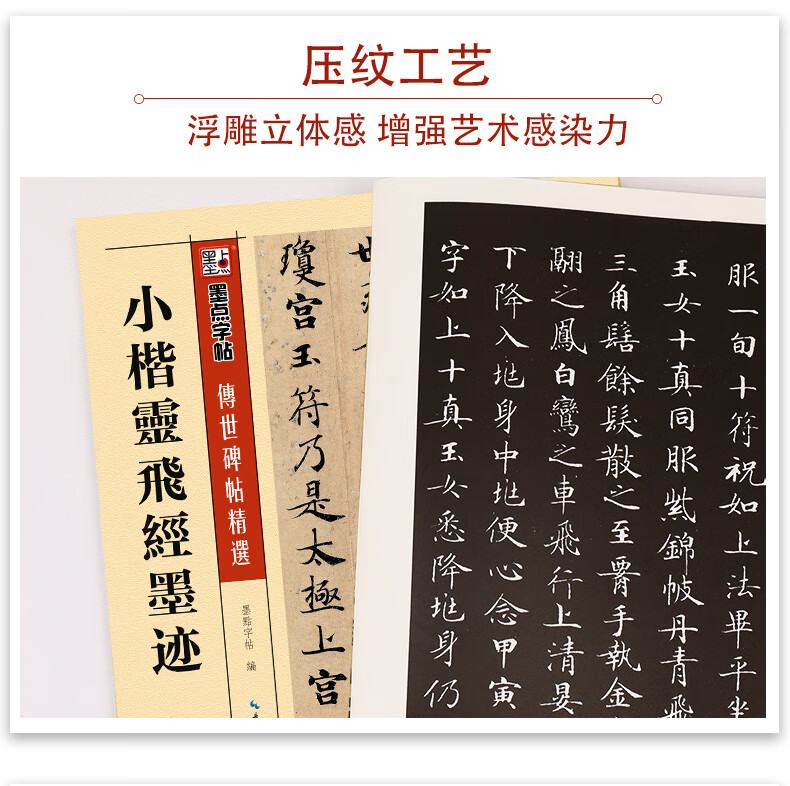 压纹工艺
浮雕立体感 增强艺术感染力
小楷靈飛經墨迹
墨点
墨点字帖
傳世碑帖精選
墨點字帖 編
瓊宫玉符乃是太極上宫
服一旬十符祝如上法畢平坐
玉女十真同服紫錦帔丹青飛
三角髻餘髮散之至腰手執金
翮之鳳白鸞之車飛行上清晏
下降入趾身中趾便心念甲寅
字如上十真玉女悉降趾身仍